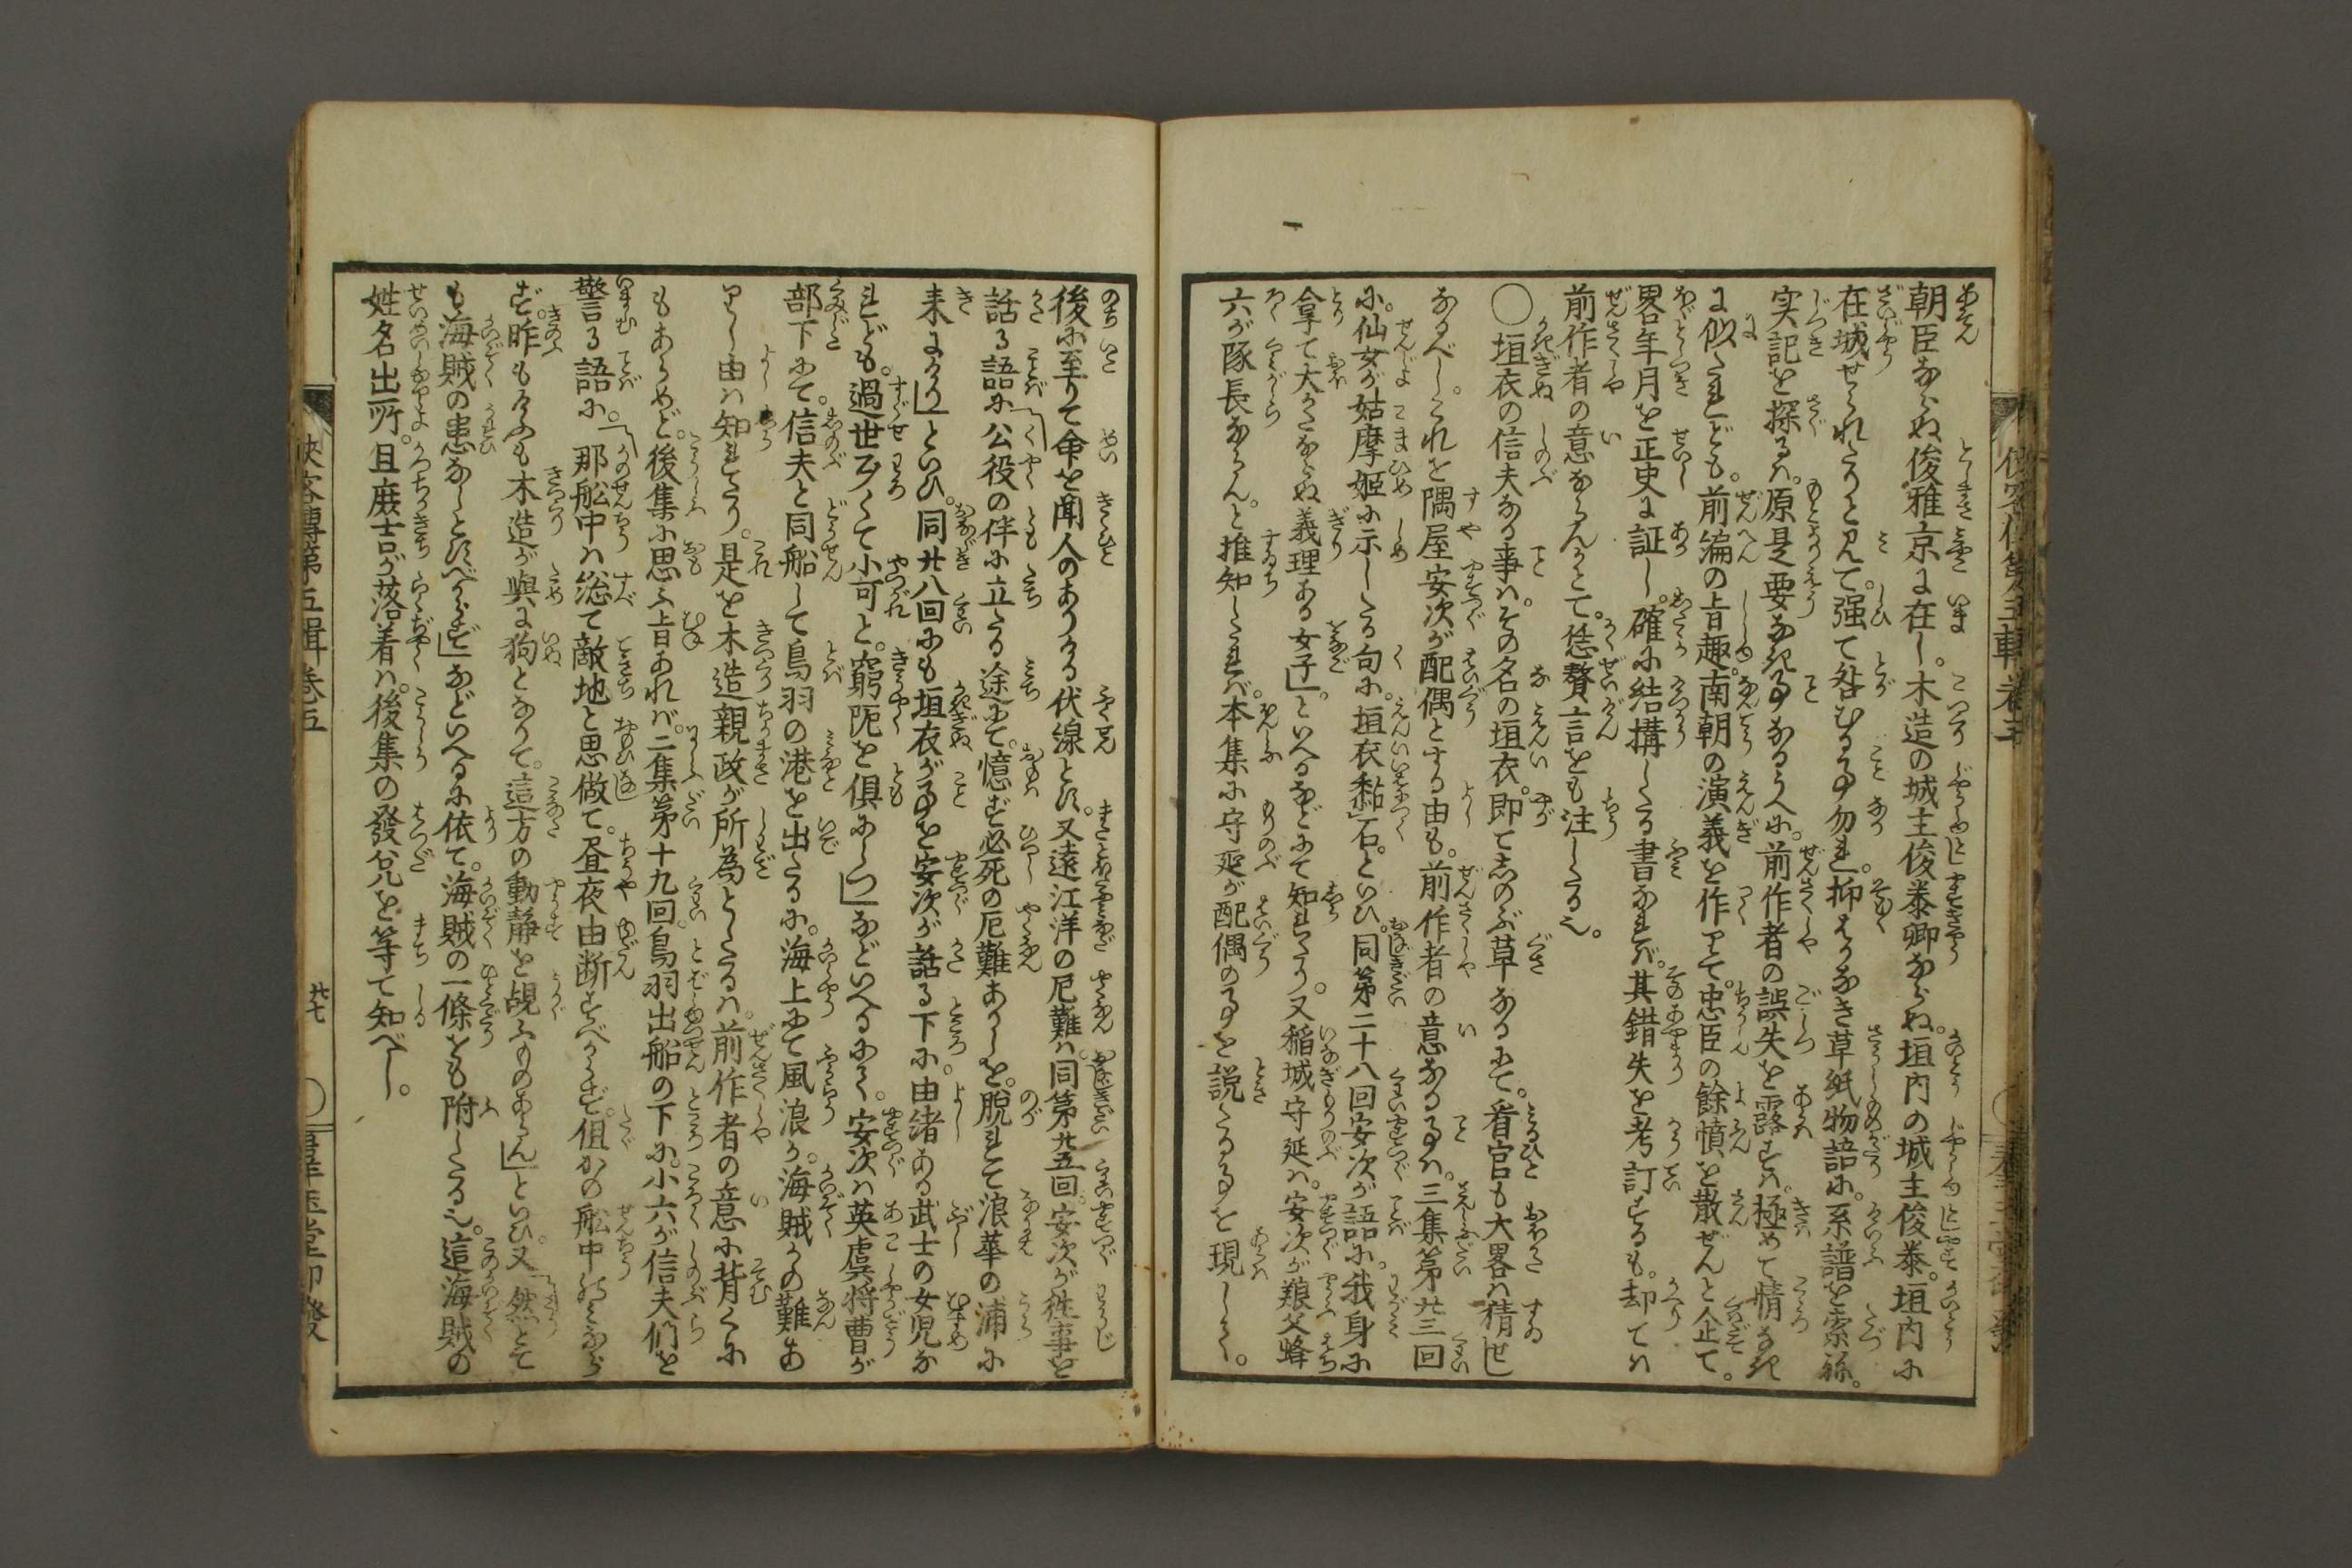 朝臣ならぬ俊雅京に在し。木造の城主俊泰卿ならぬ。垣内の城主俊泰。垣内に
在城せられたりと見て。强て咎むる事勿れ。抑はかなき草紙物語に。系譜を索ね。
実記を探るハ。原是要なき事なるうへに。前作者の誤失を露すハ。極めて情なき
に似たれども。前編の旨趣。南朝の演義を作りて。忠臣の餘憤を散ぜんと企て。
畧年月を正史に証し。確に結構したる書なれバ。其錯失を考訂するも。却てハ
前作者の意ならんかとて。恁贅言をも注したる也。
○垣衣の信夫なる事ハ。その名の垣衣。即て志のぶ草なるにて。看官も大畧ハ猜せし
なるべし。これを隅屋安次が配偶とする由も。前作者の意なる事ハ。三集第廿三回
に。仙女が姑摩姫に示したる句に。垣衣黏石。といひ。同第二十八回安次が語に。我身に
拿て大かたならぬ義理ある女子」。といへるなどにて知れたり。又稲城守延ハ。安次が粮父蜂
六が隊長ならん。と推知したれバ。本集に守延が配偶の事を説たる事を現しく。
後に至りて命を聞人のありける伏線とす。又遠江洋の厄難ハ。同第廿五回。安次が徃事を
話る語に「公役の伴に立たる途にて。憶ず必死の厄難ありしを。脱れて浪華の浦に
来にけり」といひ。同廿八回にも垣衣が事を安次が話る下に。由緒ある武士の女児な
れども。過世てて小可と。窮阨を倶にしつ」などいへるに。安次ハ英虞将曹が
部下にて。信夫と同船して鳥羽の港を出たるに。海上にて風浪か。海賊かの難あ
りし由ハ知れたり。是を木造親政が所為としたるハ。前作者の意に背くに
もあらめど。後集に思ふ旨あれバ。二集第十九回。鳥羽出船の下に。小六が信夫們を
警る語に。「那舩中ハ総て敵地と思做て。昼夜由断すべからず。俎かの舩中のミなら
ず。昨もけふも木造が與に狗となりて。這方の動静を覘ふものあらん」といひ。又「然とて
も海賊の患なしとすべからず」などいへるに依て。海賊の一條をも附したる也。這海賊の
姓名出所。且麻士吉が落着ハ。後集の發兌を等て知べし。
侠客傳第五輯巻五
廿七